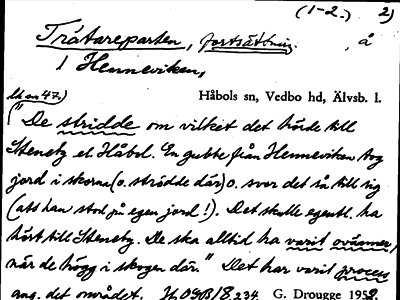 (1-2.) 2)
Trätareparten, fortsättning. , å
1 Henneviken,
Håbols sn, Vedbo hd, Älvsb. l.
("De stridde om vilket det hörde till
Steneby el. Håbol. En gubbe från Henneviken tog
jord i skorna (o. strödde där) o. svor det så till sig
(att han stod på egen jord!). Det skulle egentl. ha
hört till Steneby. De ska alltid ha varit ovänner,
när de högg i skogen där." Det har varit process
ang. det området. G. Drougge 1932.